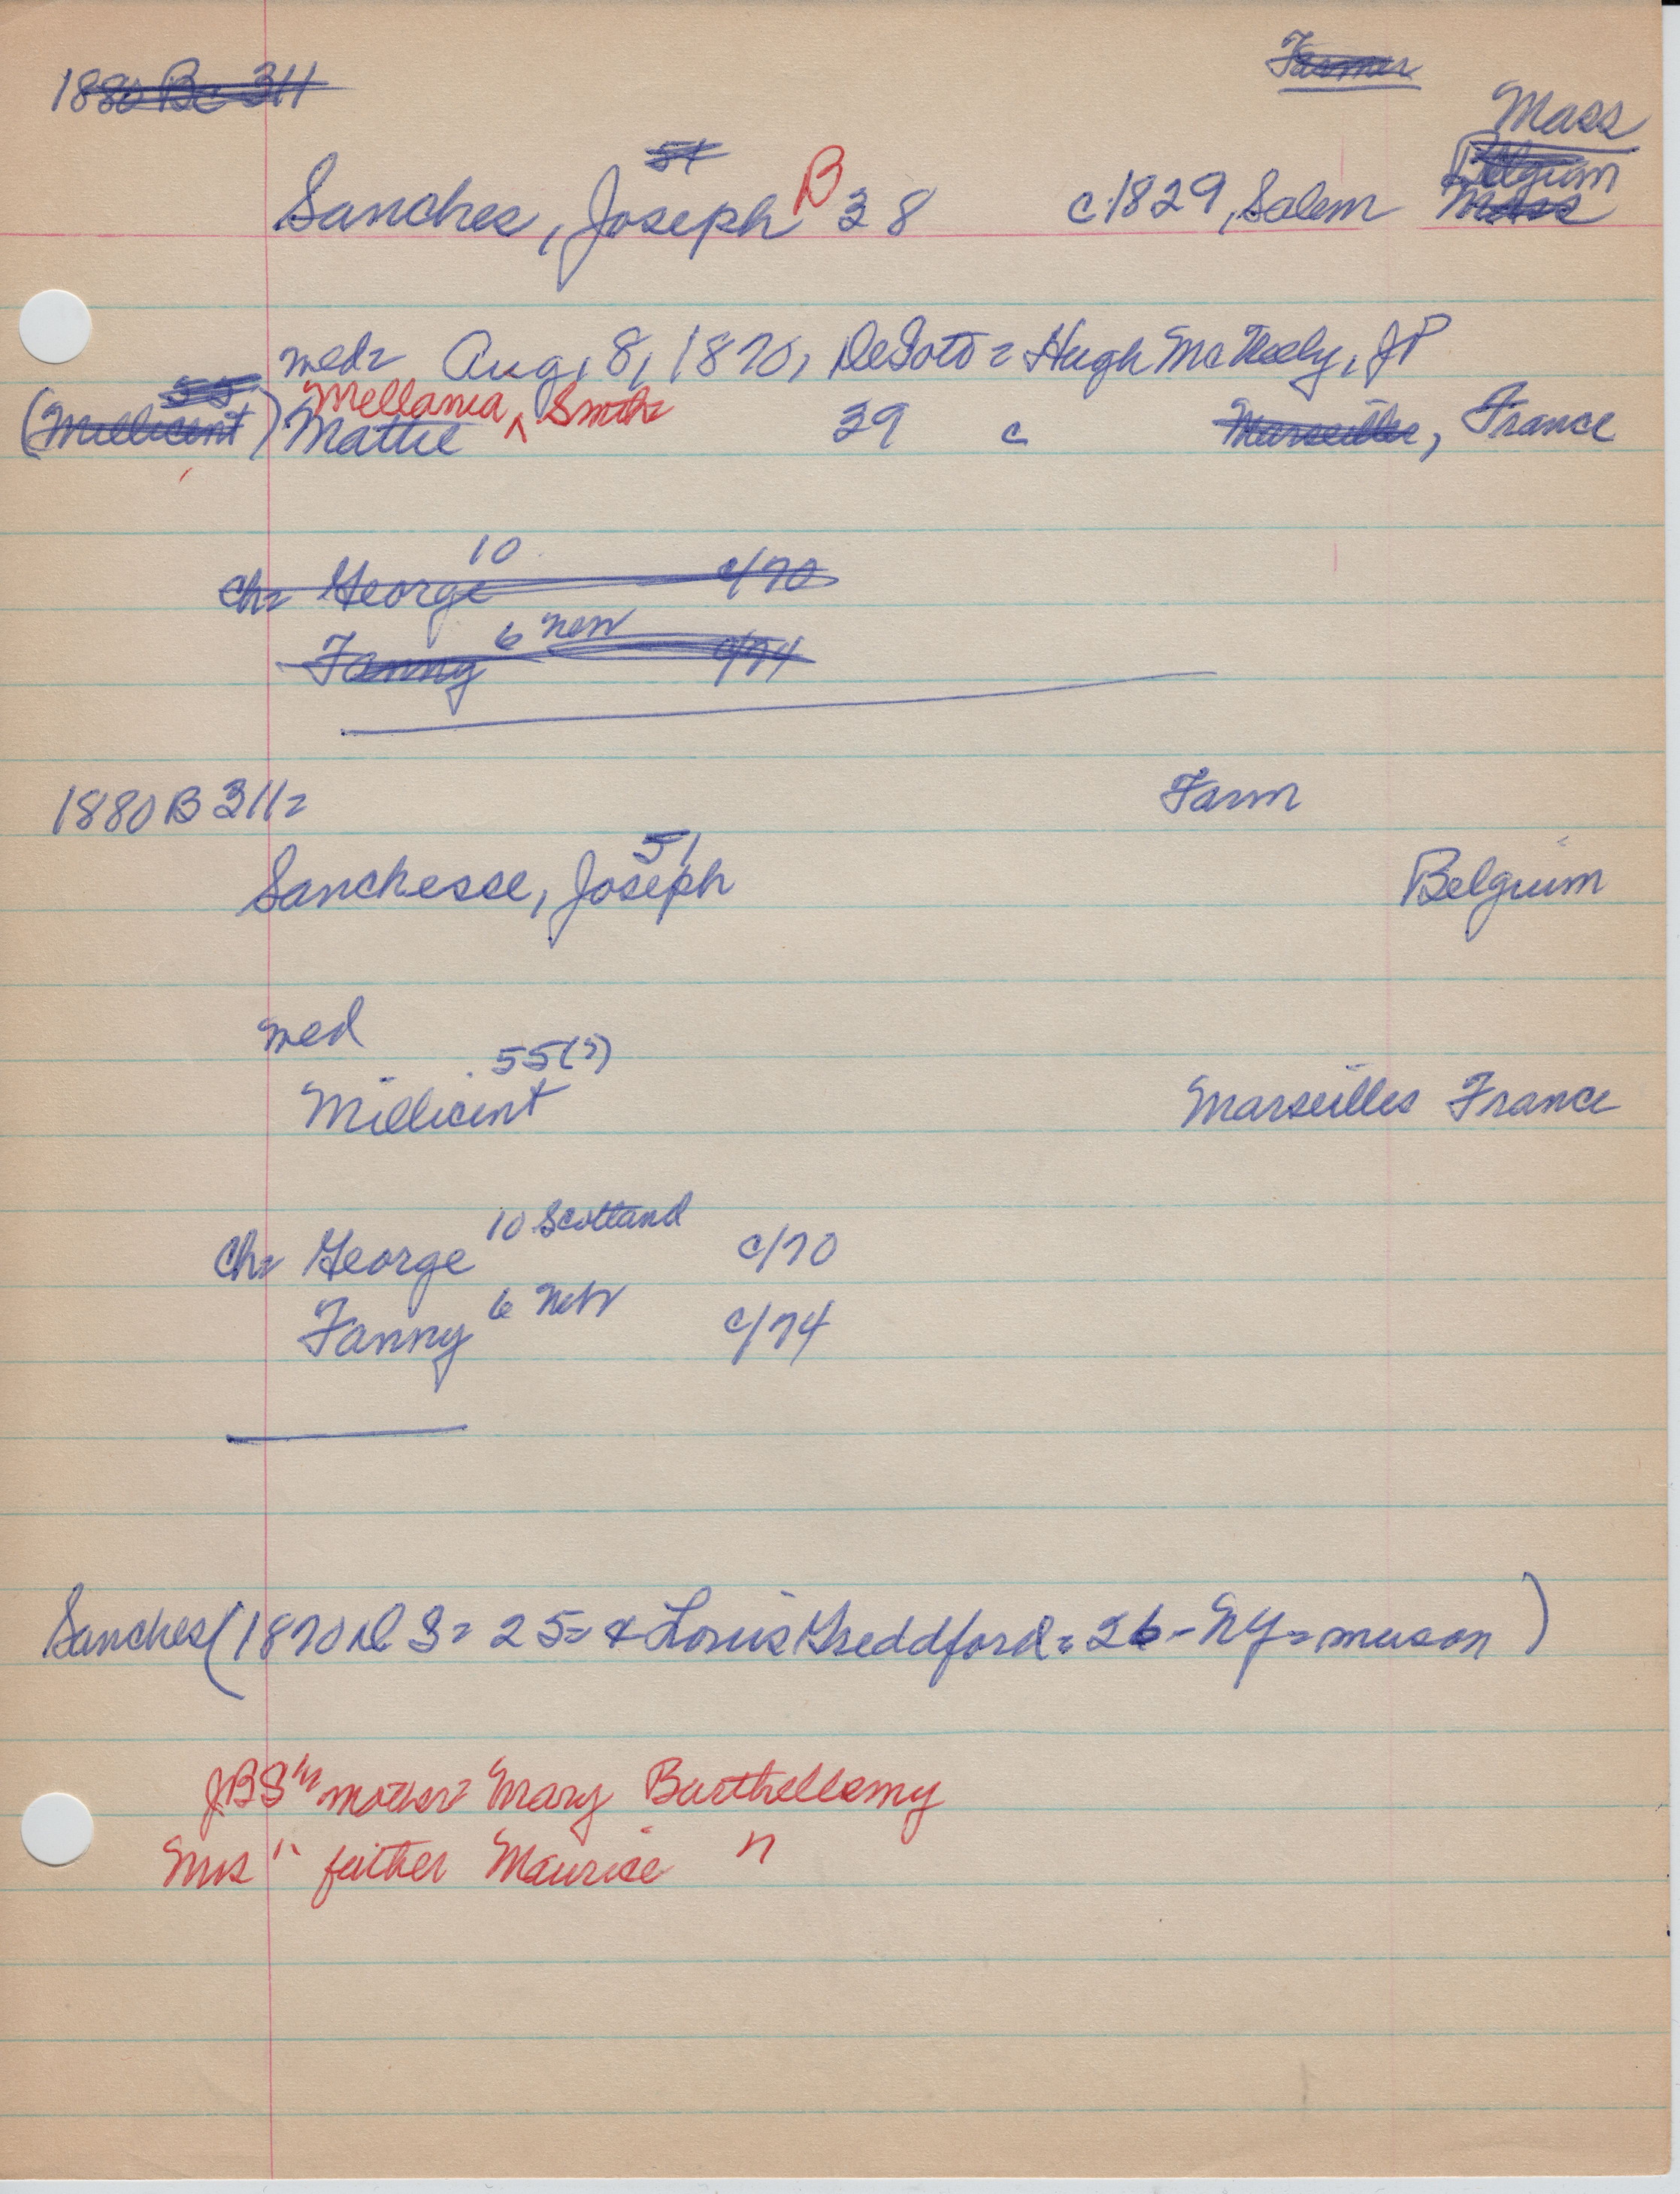 Farmer
1880 Bc 311
Mass
51
Belgium
Sanches, Joseph B 38 c1829, Salem Mass
med= Aug, 8, 1870, DeSoto = Hugh McNeely, JP
55 Mellania ^ Smith
(Millicent) Mattie 39 c Marseilles, France
10
ch= George c/70
6 new
Fanny c/74
1880 B 311= Farm
51
Sanchesse, Joseph Belgium
med
55(?)
Millicent Marseilles France
10 Scotland
ch= George c/70
6 Nebr
Fanny c/74
Sanches (1870 D S= 25= & Louis Greddford= 26- NY= mason)
JBS "s mother= Mary Barthellemy
Mrs " father Maurice "